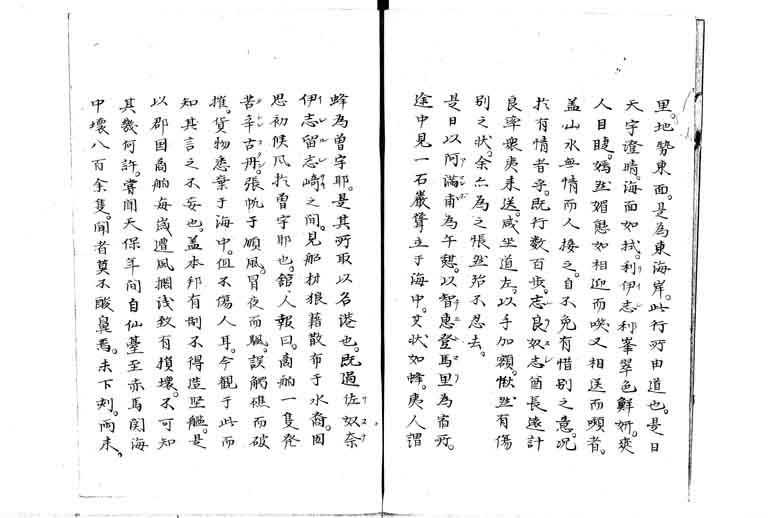 里。地勢東面。是為東海岸。此行所由道也。是日
天宇澄晴。海面如拭。利伊志利峯翠色鮮妍。爽
人目睫。嫣然媚態如相迎而咲。又相送而嚬者。
盖山水無情而人接之。自不免有惜別之意。况
於有情者乎。既行数百歩。志良奴志酋長遠計
良率衆夷来送。咸坐道左。以手加額。愀然有傷
別之状。余亦為之悵然殆不忍去。
是日以阿满甫為午憩。以智恵登馬里為宿所。
途中見一石巌聳立于海中。其状如蜂。夷人謂
蜂為曽宇耶。是其所取以名港也。既過佐奴奈
伊志留志﨑之間。見船材狼藉散布于水裔。因
思初候风於曽宇耶也。舘人報曰。商舶一隻発
苦辛古丹。張帆于順風。冒夜而颿。誤觸礁而破
摧。貨物悉棄于海中。但不傷人耳。今觀于此而
知其言之不妄也。盖本邦有制不得造堅艦。是
以郡国商舶每歳遭风搁浅致有損壊。不可知
其幾何許。嘗聞天保年间自仙臺至赤馬関海
中壊八百余隻。聞者莫不酸鼻焉。未下刻。雨未。